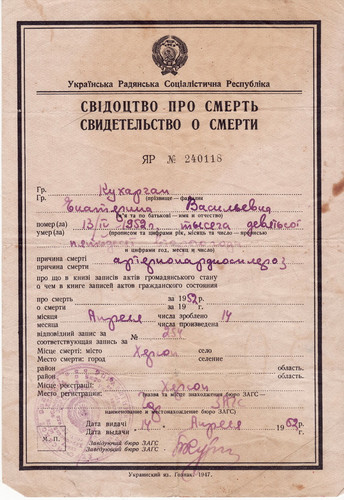 Українська Радянська Соціалістична Республіка
СВІДОЦТВО ПРО СМЕРТЬ
СВИДЕТЕЛЬСТВО О СМЕРТИ
ЯР № 240118
Гр. Кухарган
Гр. (прізвище—фамилия)
Екатерина Васильевна
(ім'я та по батькові—имя и отчество)
помер(ла) 13/IV 1952г. тысеча девятьсот
умер(ла) (прописом та цифрами рік, місяць та число—прописью
и цифрами год, месяц и число)
причина смерті
причина смерти артериокардиосклероз
про що в книзі записів актів громадянського стану
о чем в книге записей актов гражданского состояния
про смерть за 1952р.
о смерти за 19 г.
місяця Апреля числа зроблено 14
месяца числа произведена
відповідний запис за № 254
соответствующая запись за
Місце смерті: м. Херсон село
Место смерти: город селение
район область.
район область.
Місце реєстрації: Херсон
Место регистрации: (назва та місце знаходження бюро ЗАГС—
ЗАГС
наименование и местонахождение бюро ЗАГС)
Дата видачі 14 Апреля 1952р.
Дата выдачи г.
М. П. Завідуючий бюро ЗАГС
Заведующий бюро ЗАГС
Украинский из. Гознак. 1947.